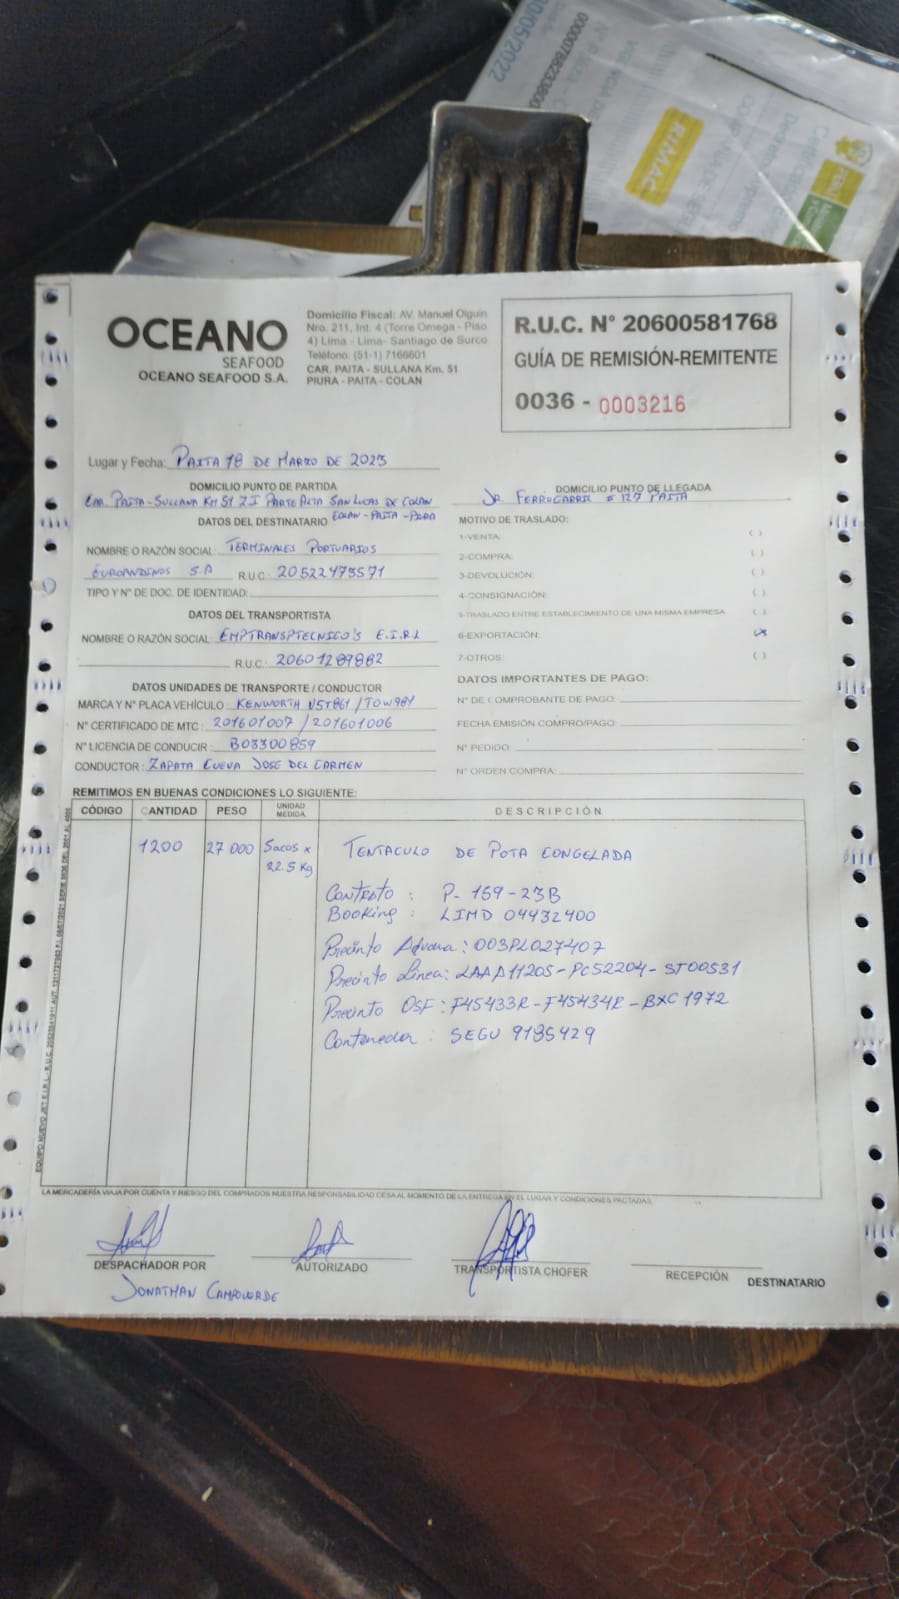 30/05/2022
00000798233800
RIMAC
PERÚ
OCEANO
SEAFOOD
OCEANO SEAFOOD S.A.
Domicilio Fiscal: AV. Manuel Olguin
Nro. 211, Int. 4 (Torre Omega - Piso
4) Lima - Lima- Santiago de Surco
Teléfono: (51-1) 7166601
CAR. PAITA - SULLANA Km. 51
PIURA - PAITA - COLAN
R.U.C. N° 20600581768
GUÍA DE REMISIÓN-REMITENTE
0036 - 0003216
Lugar y Fecha: PAITA 18 DE MARZO DE 2023
DOMICILIO PUNTO DE PARTIDA
CAR. PAITA-SULLANA KM 51 Z.I PARTE ALTA SAN LUCAS DE COLAN
COLAN-PAITA-PIURA
DOMICILIO PUNTO DE LLEGADA
JR. FERROCARRIL # 127 PAITA
DATOS DEL DESTINATARIO
NOMBRE O RAZÓN SOCIAL: TERMINALES PORTUARIOS
EUROANDINOS S.A R.U.C.: 20522473571
TIPO Y N° DE DOC. DE IDENTIDAD:
DATOS DEL TRANSPORTISTA
NOMBRE O RAZÓN SOCIAL: EMPTRANSPTECNICO'S E.I.R.L
R.U.C.: 20601289882
DATOS UNIDADES DE TRANSPORTE / CONDUCTOR
MARCA Y N° PLACA VEHÍCULO: KENWORTH V5T861/TOW981
N° CERTIFICADO DE MTC: 201601007 / 201601006
N° LICENCIA DE CONDUCIR: B03300859
CONDUCTOR: ZAPATA CUEVA JOSE DEL CARMEN
MOTIVO DE TRASLADO:
1-VENTA: ( )
2-COMPRA: ( )
3-DEVOLUCIÓN: ( )
4-CONSIGNACIÓN: ( )
5-TRASLADO ENTRE ESTABLECIMIENTO DE UNA MISMA EMPRESA ( )
6-EXPORTACIÓN: (x)
7-OTROS: ( )
DATOS IMPORTANTES DE PAGO:
N° DE COMPROBANTE DE PAGO:
FECHA EMISIÓN COMPRO/PAGO:
N° PEDIDO:
N° ORDEN COMPRA:
REMITIMOS EN BUENAS CONDICIONES LO SIGUIENTE:
CÓDIGO CANTIDAD PESO UNIDAD MEDIDA DESCRIPCIÓN
1200 27 000 Sacos x 22.5 Kg TENTACULO DE POTA CONGELADA
Contrato : P-159-23B
Booking : LIMD 04432400
Precinto Aduana : 003PL027407
Precinto Linea: LAAA11205-PC52204-ST00531
Precinto OSF : F45433R-F45434R-BXC1972
Contenedor : SEGU 9195429
LA MERCADERÍA VIAJA POR CUENTA Y RIESGO DEL COMPRADOS NUESTRA RESPONSABILIDAD CESA AL MOMENTO DE LA ENTREGA EN EL LUGAR Y CONDICIONES PACTADAS.
DESPACHADOR POR
AUTORIZADO
TRANSPORTISTA CHOFER
RECEPCIÓN
DESTINATARIO
JONATHAN CAMPOVERDE